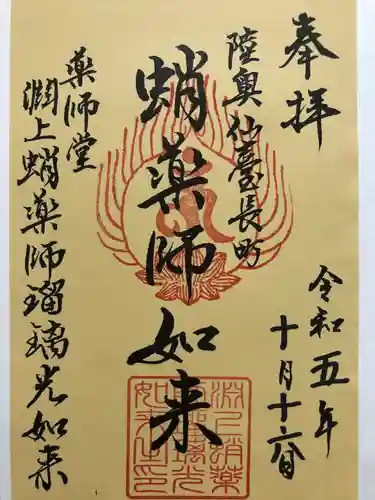 奉拝
令和五年
十月十六日
陸奥仙臺長町
蛸薬師如来
薬師堂
渕上蛸薬師瑠璃光如来